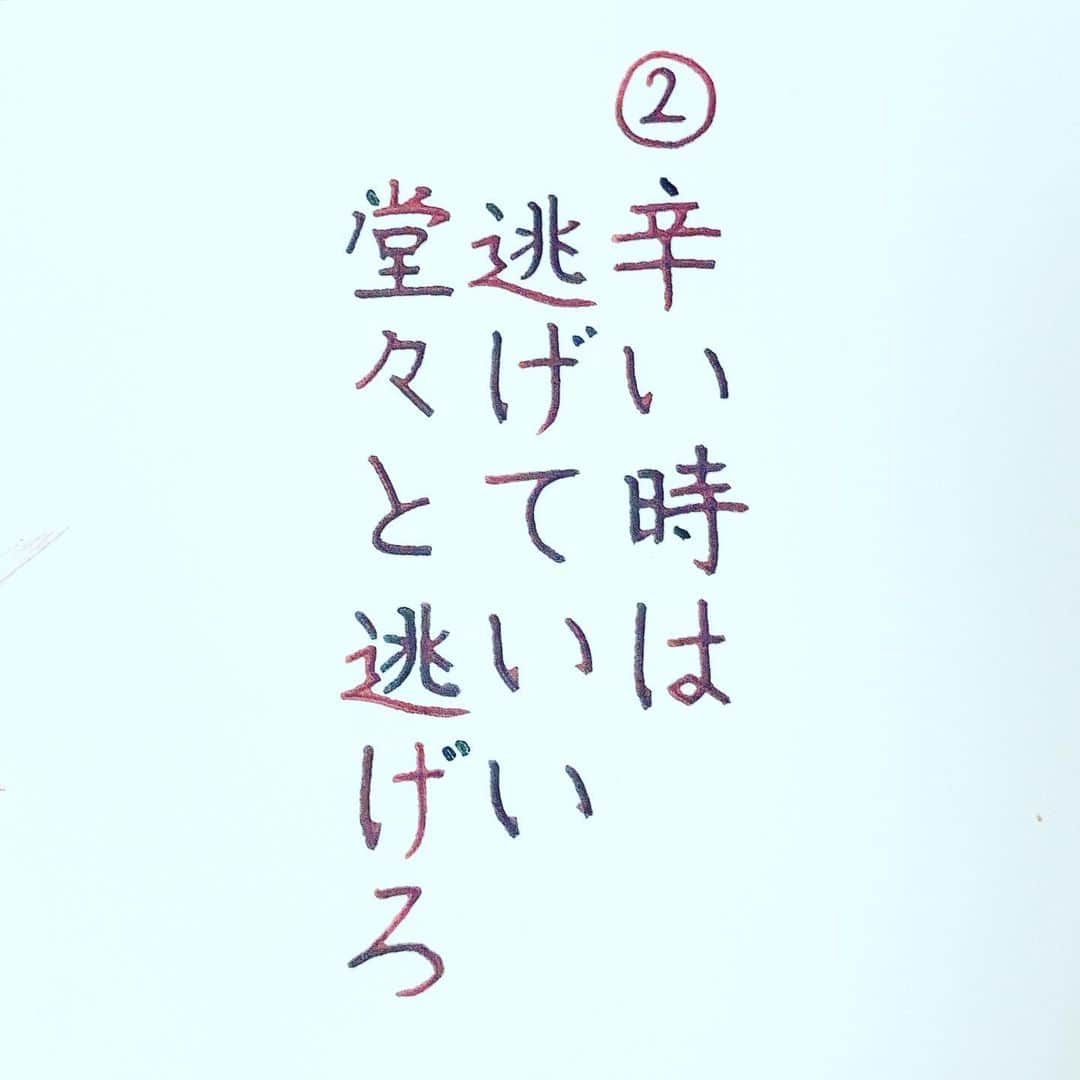 ②辛い時は
逃げていい
堂々と逃げろ